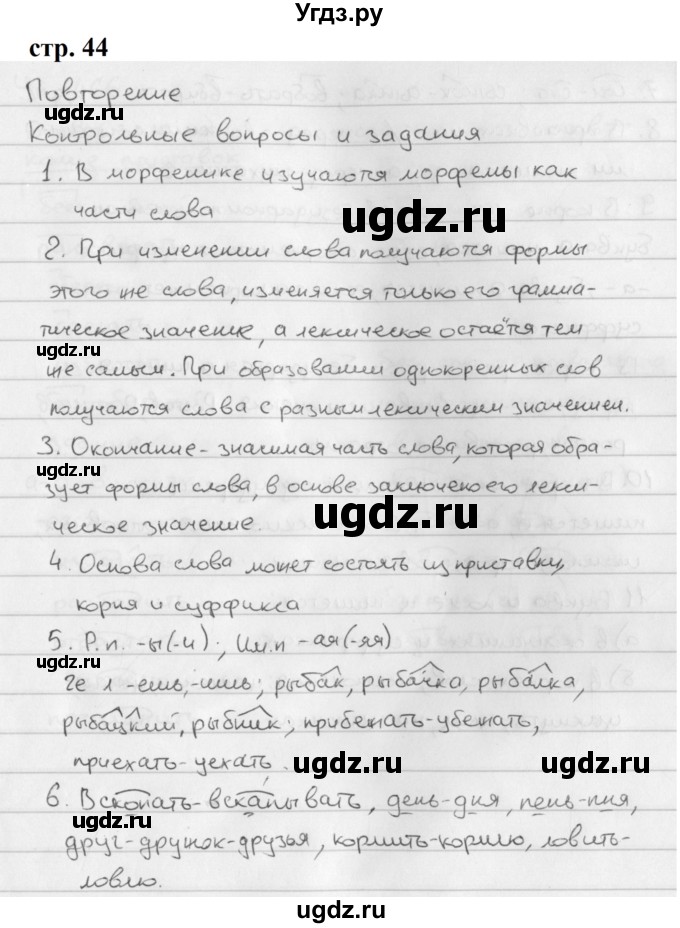 Угдз.ру
стр. 44
Повторение
ugdz.ru
Контрольные вопросы и задания
1. В морфемике изучаются морфемы как
части слова
ugdz.ru
2. При изменении слова получаются формы
этого же слова, изменяется только его грамма-
тическое значение, а лексическое остаётся тем
ugdz.ru
же самым. При образовании однокоренных слов
получаются слова с разным лексическим значением.
3. Окончание - значимая часть слова, которая обра-
ugdz.ru
зует формы слова, в основе заключено его лекси-
ческое значение.
ugdz.ru
4. Основа слова может состоять из приставки,
корня и суффикса
5. Р.п. -ы(-и); Им.п -ая(-яя)
ugdz.ru
2е л -ешь,-ишь; рыбак, рыбачка, рыбалка,
рыбацкий, рыбник; прибежать-убежать,
приехать-уехать.
ugdz.ru ugdz.ru
6. Вскопать-вскапывать, день-дня, пень-пня,
ugdz.ru
друг-дружок-друзья, кормить-кормлю, ловить-
ловлю.
ugdz.ru